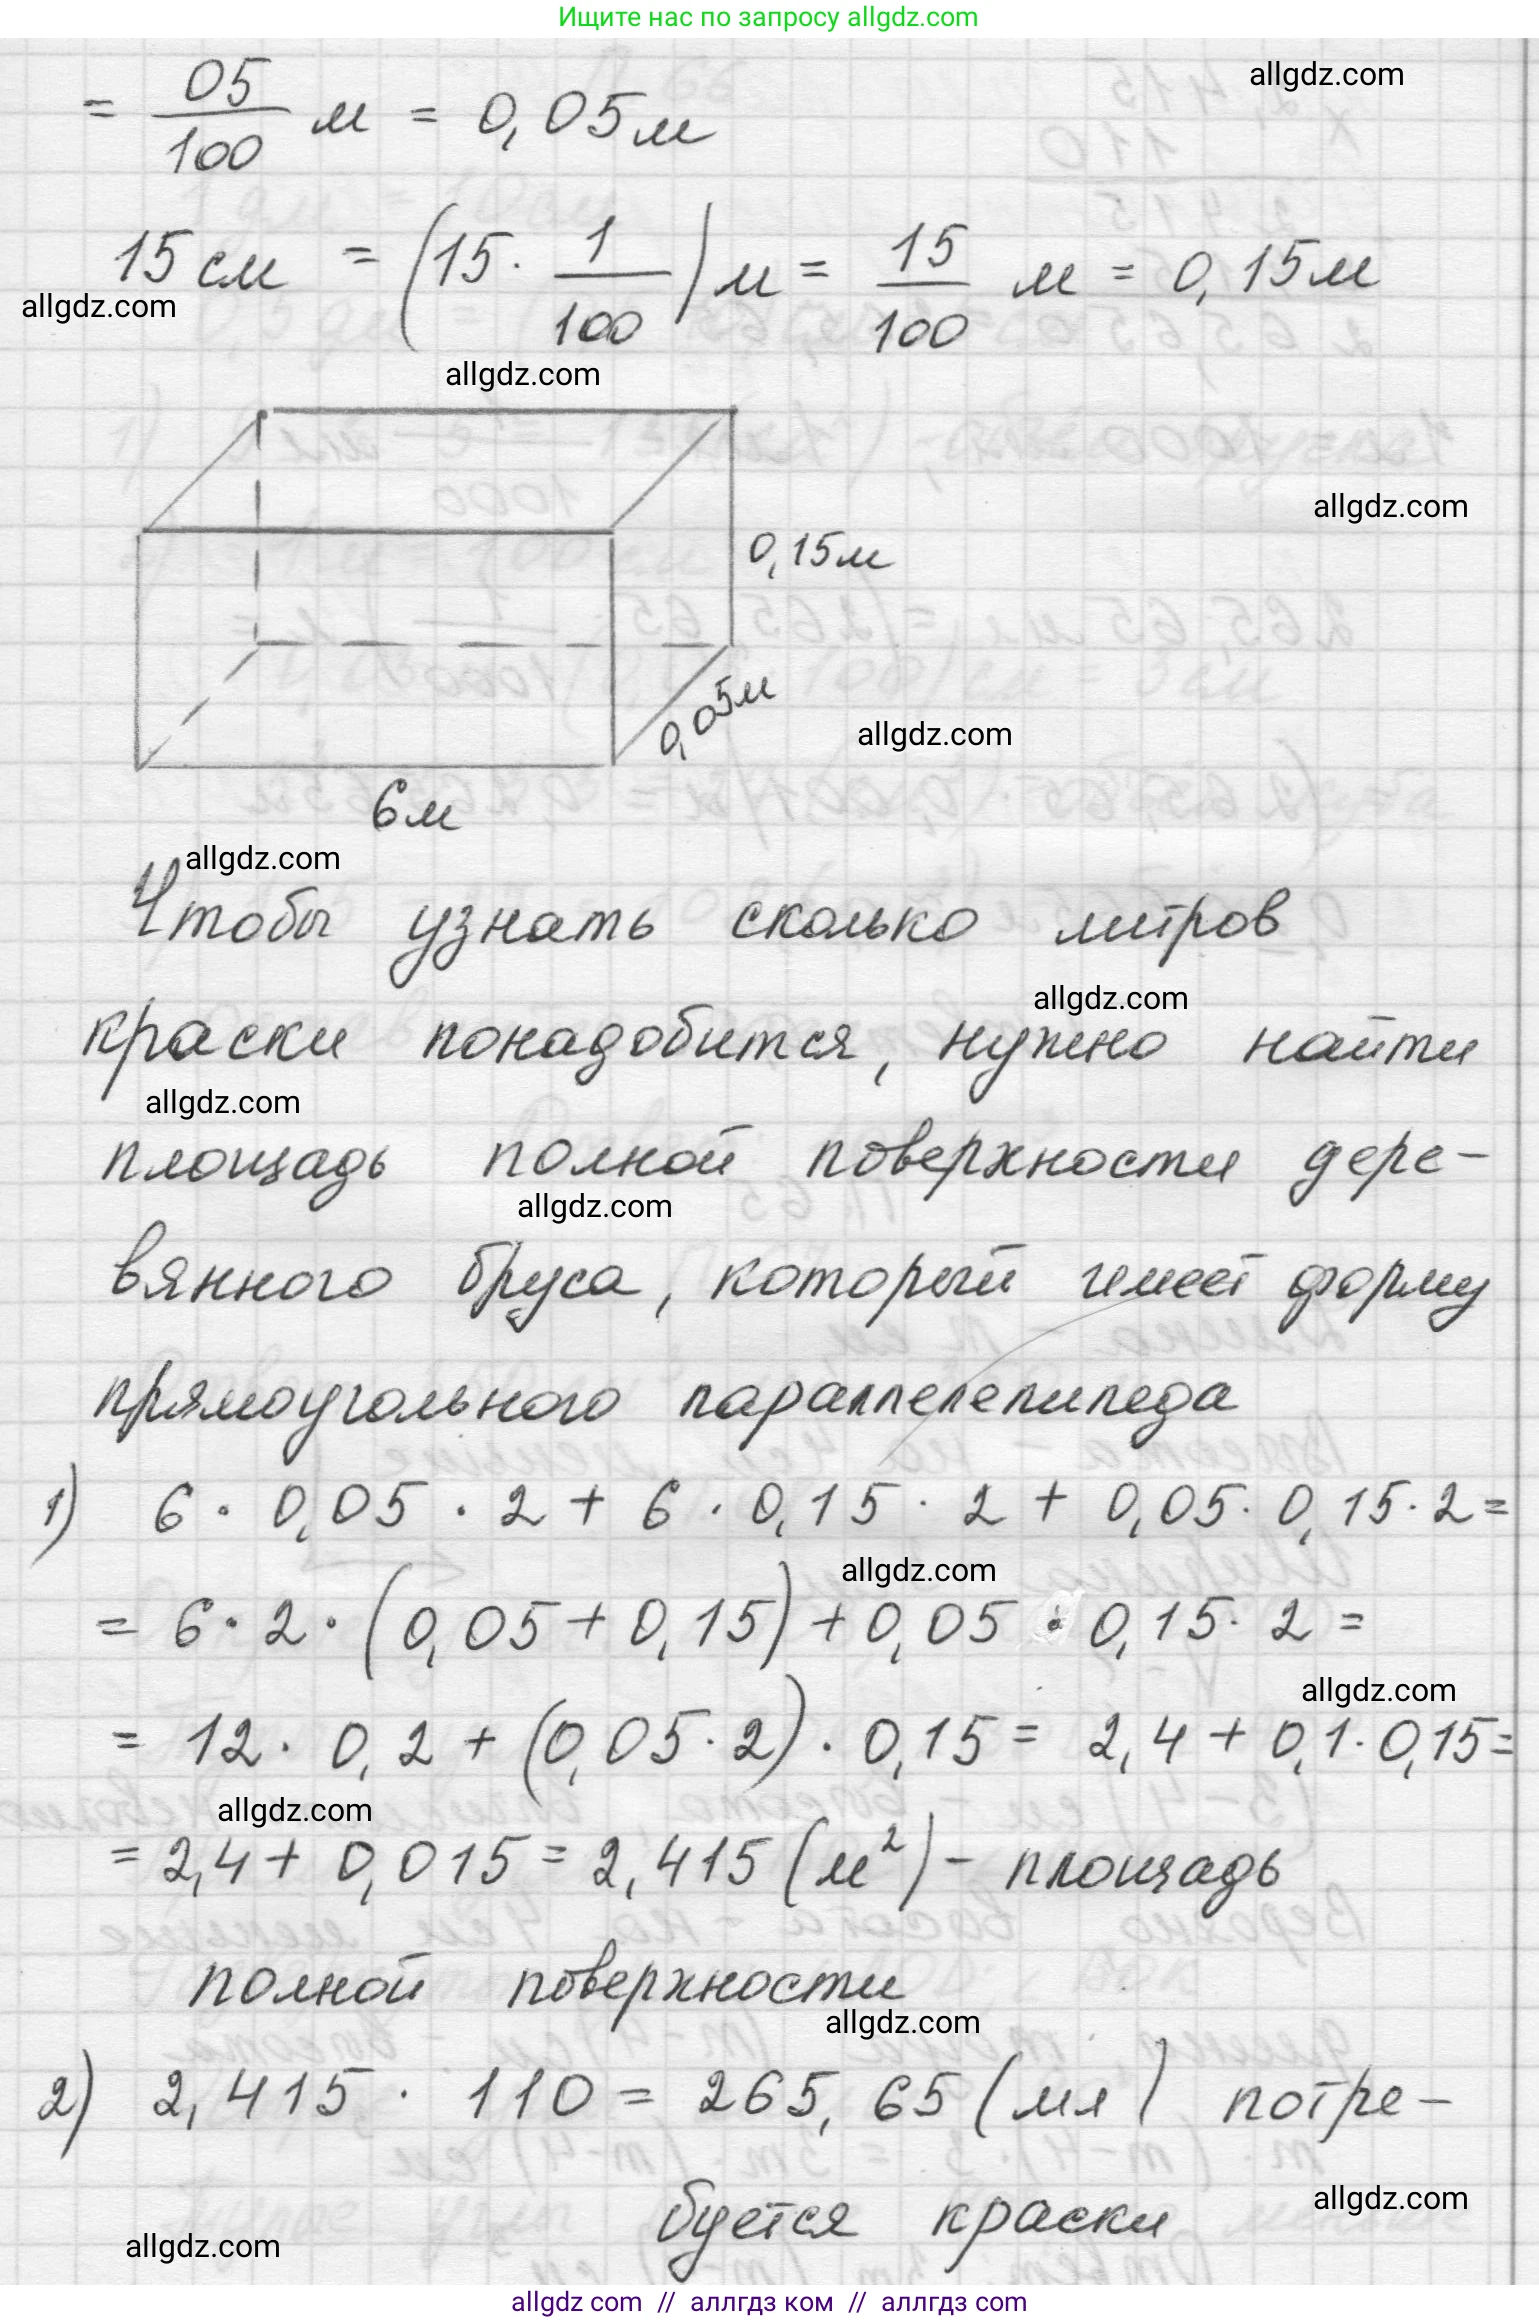 Ищите нас по запросу allgdz.com
allgdz.com
= 05/100 м = 0,05 м
15 см = (15 · 1/100) м = 15/100 м = 0,15 м
allgdz.com
allgdz.com
allgdz.com
0,15 м
0,05 м
allgdz.com
6 м
allgdz.com
Чтобы узнать сколько литров
allgdz.com
краски понадобится, нужно найти
allgdz.com
площадь полной поверхности дере-
allgdz.com
вянного бруса, который имеет форму
прямоугольного параллелепипеда
1) 6 · 0,05 · 2 + 6 · 0,15 · 2 + 0,05 · 0,15 · 2 =
allgdz.com
= 6 · 2 · (0,05 + 0,15) + 0,05 · 0,15 · 2 =
allgdz.com
= 12 · 0,2 + (0,05 · 2) · 0,15 = 2,4 + 0,1 · 0,15 =
allgdz.com
= 2,4 + 0,015 = 2,415 (м²) - площадь
полной поверхности
allgdz.com
2) 2,415 · 110 = 265,65 (мл) потре-
allgdz.com
буется краски
allgdz.com
allgdz com // аллгдз ком // аллгдз com